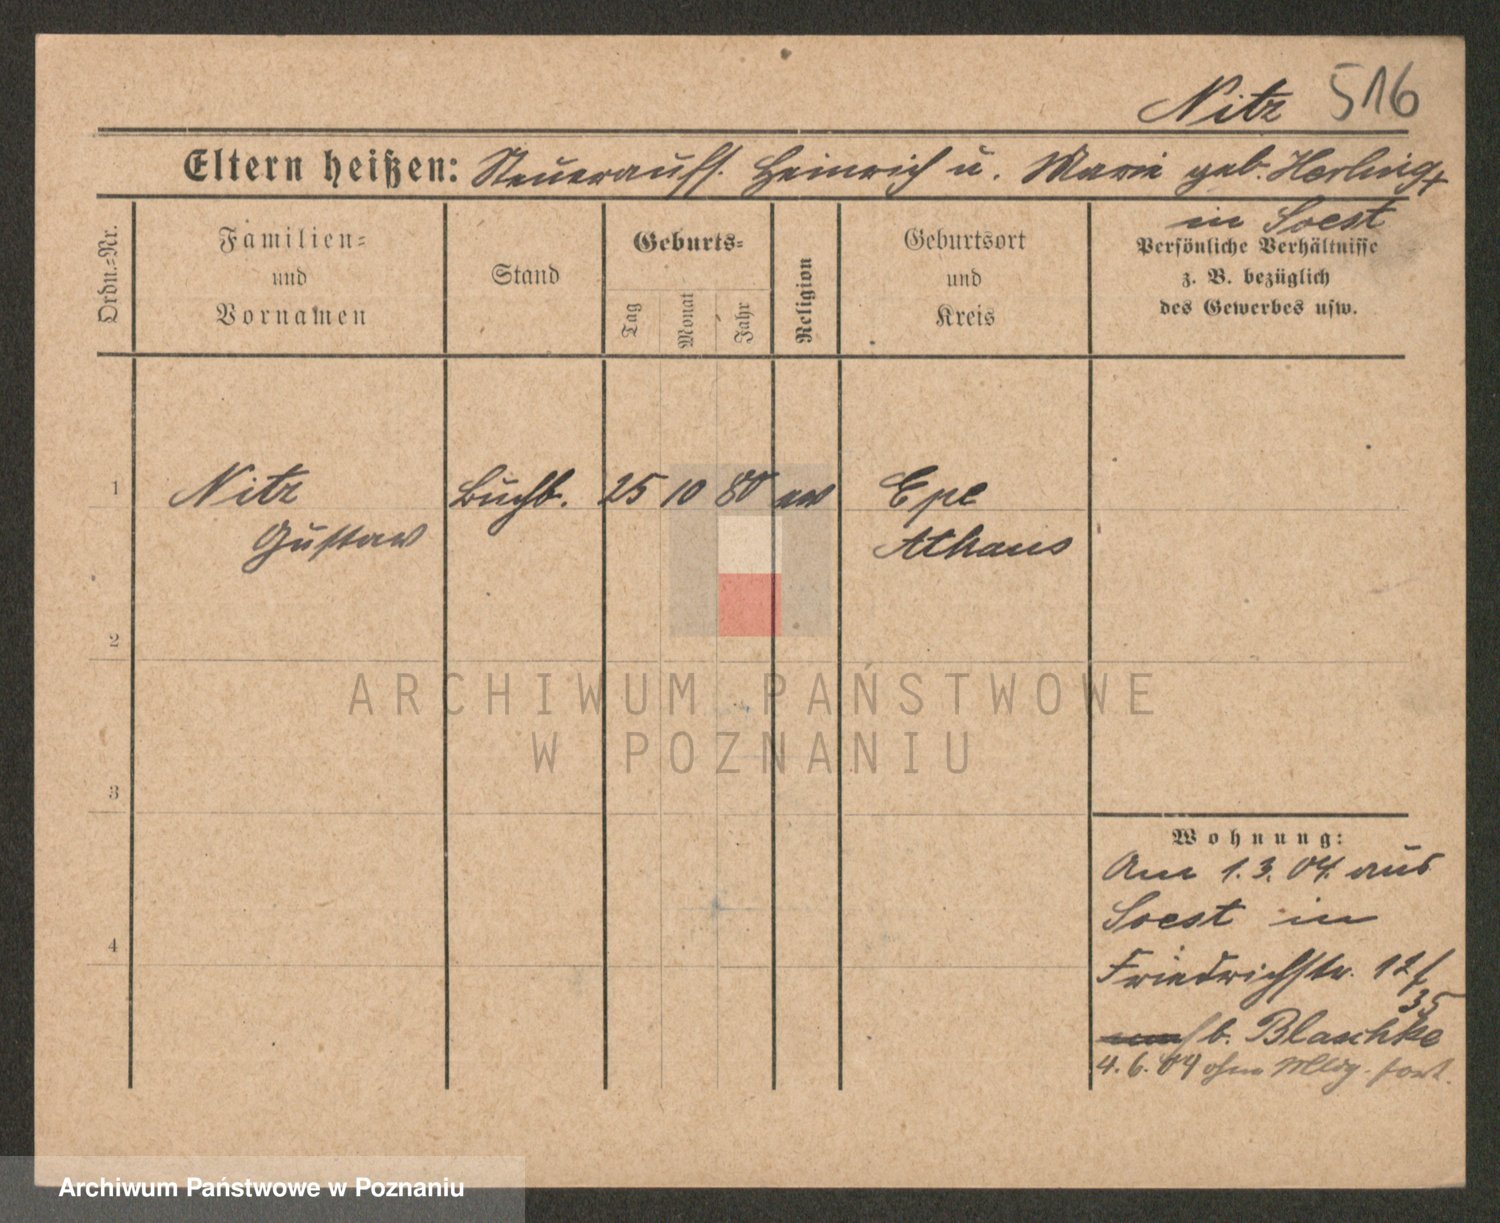 Nitz 516
Eltern heißen: Steueraufs. Heinrich u. Marie geb. Herling +
in Soest
Ordn.-Nr.
Familien-
und
Vornamen
Stand
Geburts-
Tag
Monat
Jahr
Religion
Geburtsort
und
Kreis
Persönliche Verhältnisse
z. B. bezüglich
des Gewerbes usw.
1 Nitz Buchb. 25 10 80 ev Epe
Gustav Athaus
2
ARCHIWUM PAŃSTWOWE
W POZNANIU
3
Wohnung:
Am 1.3.04. aus
Soest in
4
Friedrichstr. 12
35
b. Blaschke
4.6.04 ohne Mldg. fort.
Archiwum Państwowe w Poznaniu